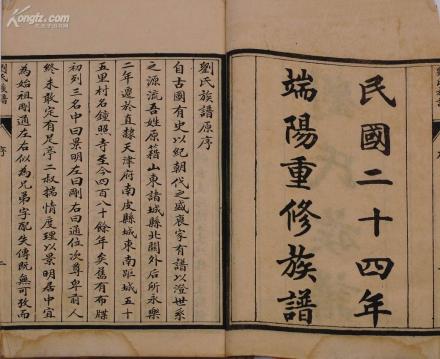 民國二十四年
端陽重修族譜
劉氏族譜原序
自古國有史以紀朝代之盛衰家有譜以澄世系
之源流吾姓原籍山東諸城縣北關外后所永樂
二年遷於直隸天津府南皮縣城東南距城五十
五里村名鐘照寺至今四百八十餘年矣舊有布牒
初列三名中曰景明左曰剛右曰通位次尊卑前人
終未敢定有足亭二叔揣情度理以景明居中宜
為始祖剛通左右似為兄弟字配失傳既無可攷而
劉氏族譜
序
Kongfz.com